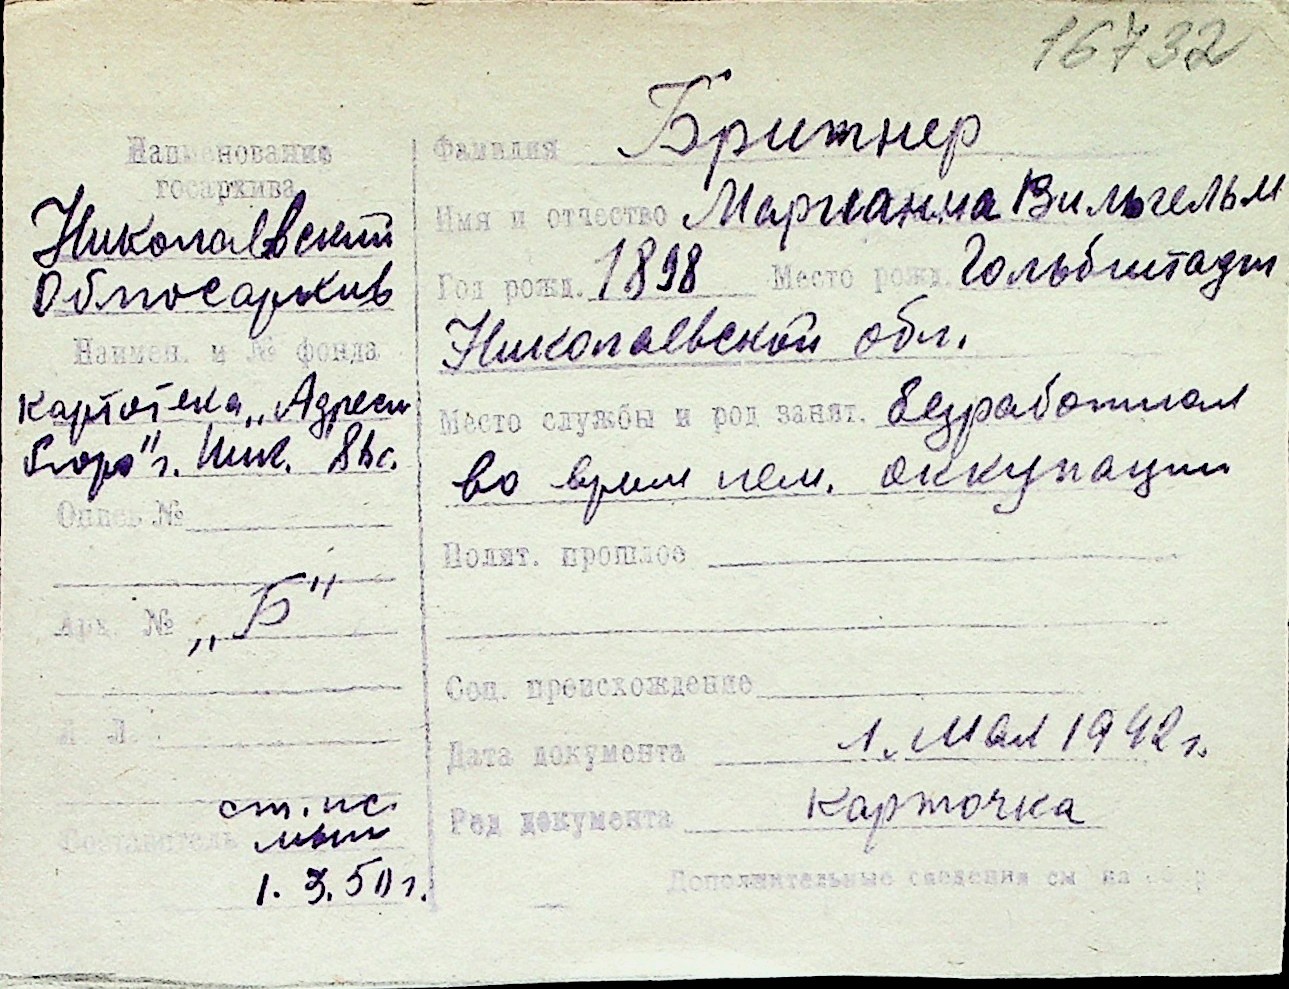 16732
Наименование
госархива
Николаевский
Облгосархив
Наимен. и № фонда
картотека „Адресн
бюро" г. Ник.
Опись №
Арх. № „Б"
Л. Л.
ст. нс.
Составитель
1. 3. 50 г.
Фамилия Бритнер
Имя и отчество Марианна Вильгельм
Год рожд. 1898 Место рожд. Гольбштадт
Николаевской обл.
Место службы и род занят. безработная
во время нем. оккупации
Полит. прошлое
Соц. происхождение
Дата документа 1. мая 1942 г.
Род документа карточка
Дополнительные сведения см на обор